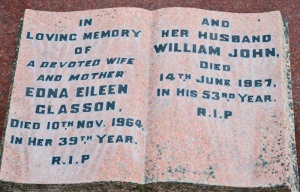 IN
LOVING MEMORY
OF
A DEVOTED WIFE
AND MOTHER
EDNA EILEEN
GLASSON,
DIED 10TH NOV. 1964,
IN HER 39TH YEAR.
R.I.P
AND
HER HUSBAND
WILLIAM JOHN,
DIED
14TH JUNE 1967,
IN HIS 53RD YEAR.
R.I.P